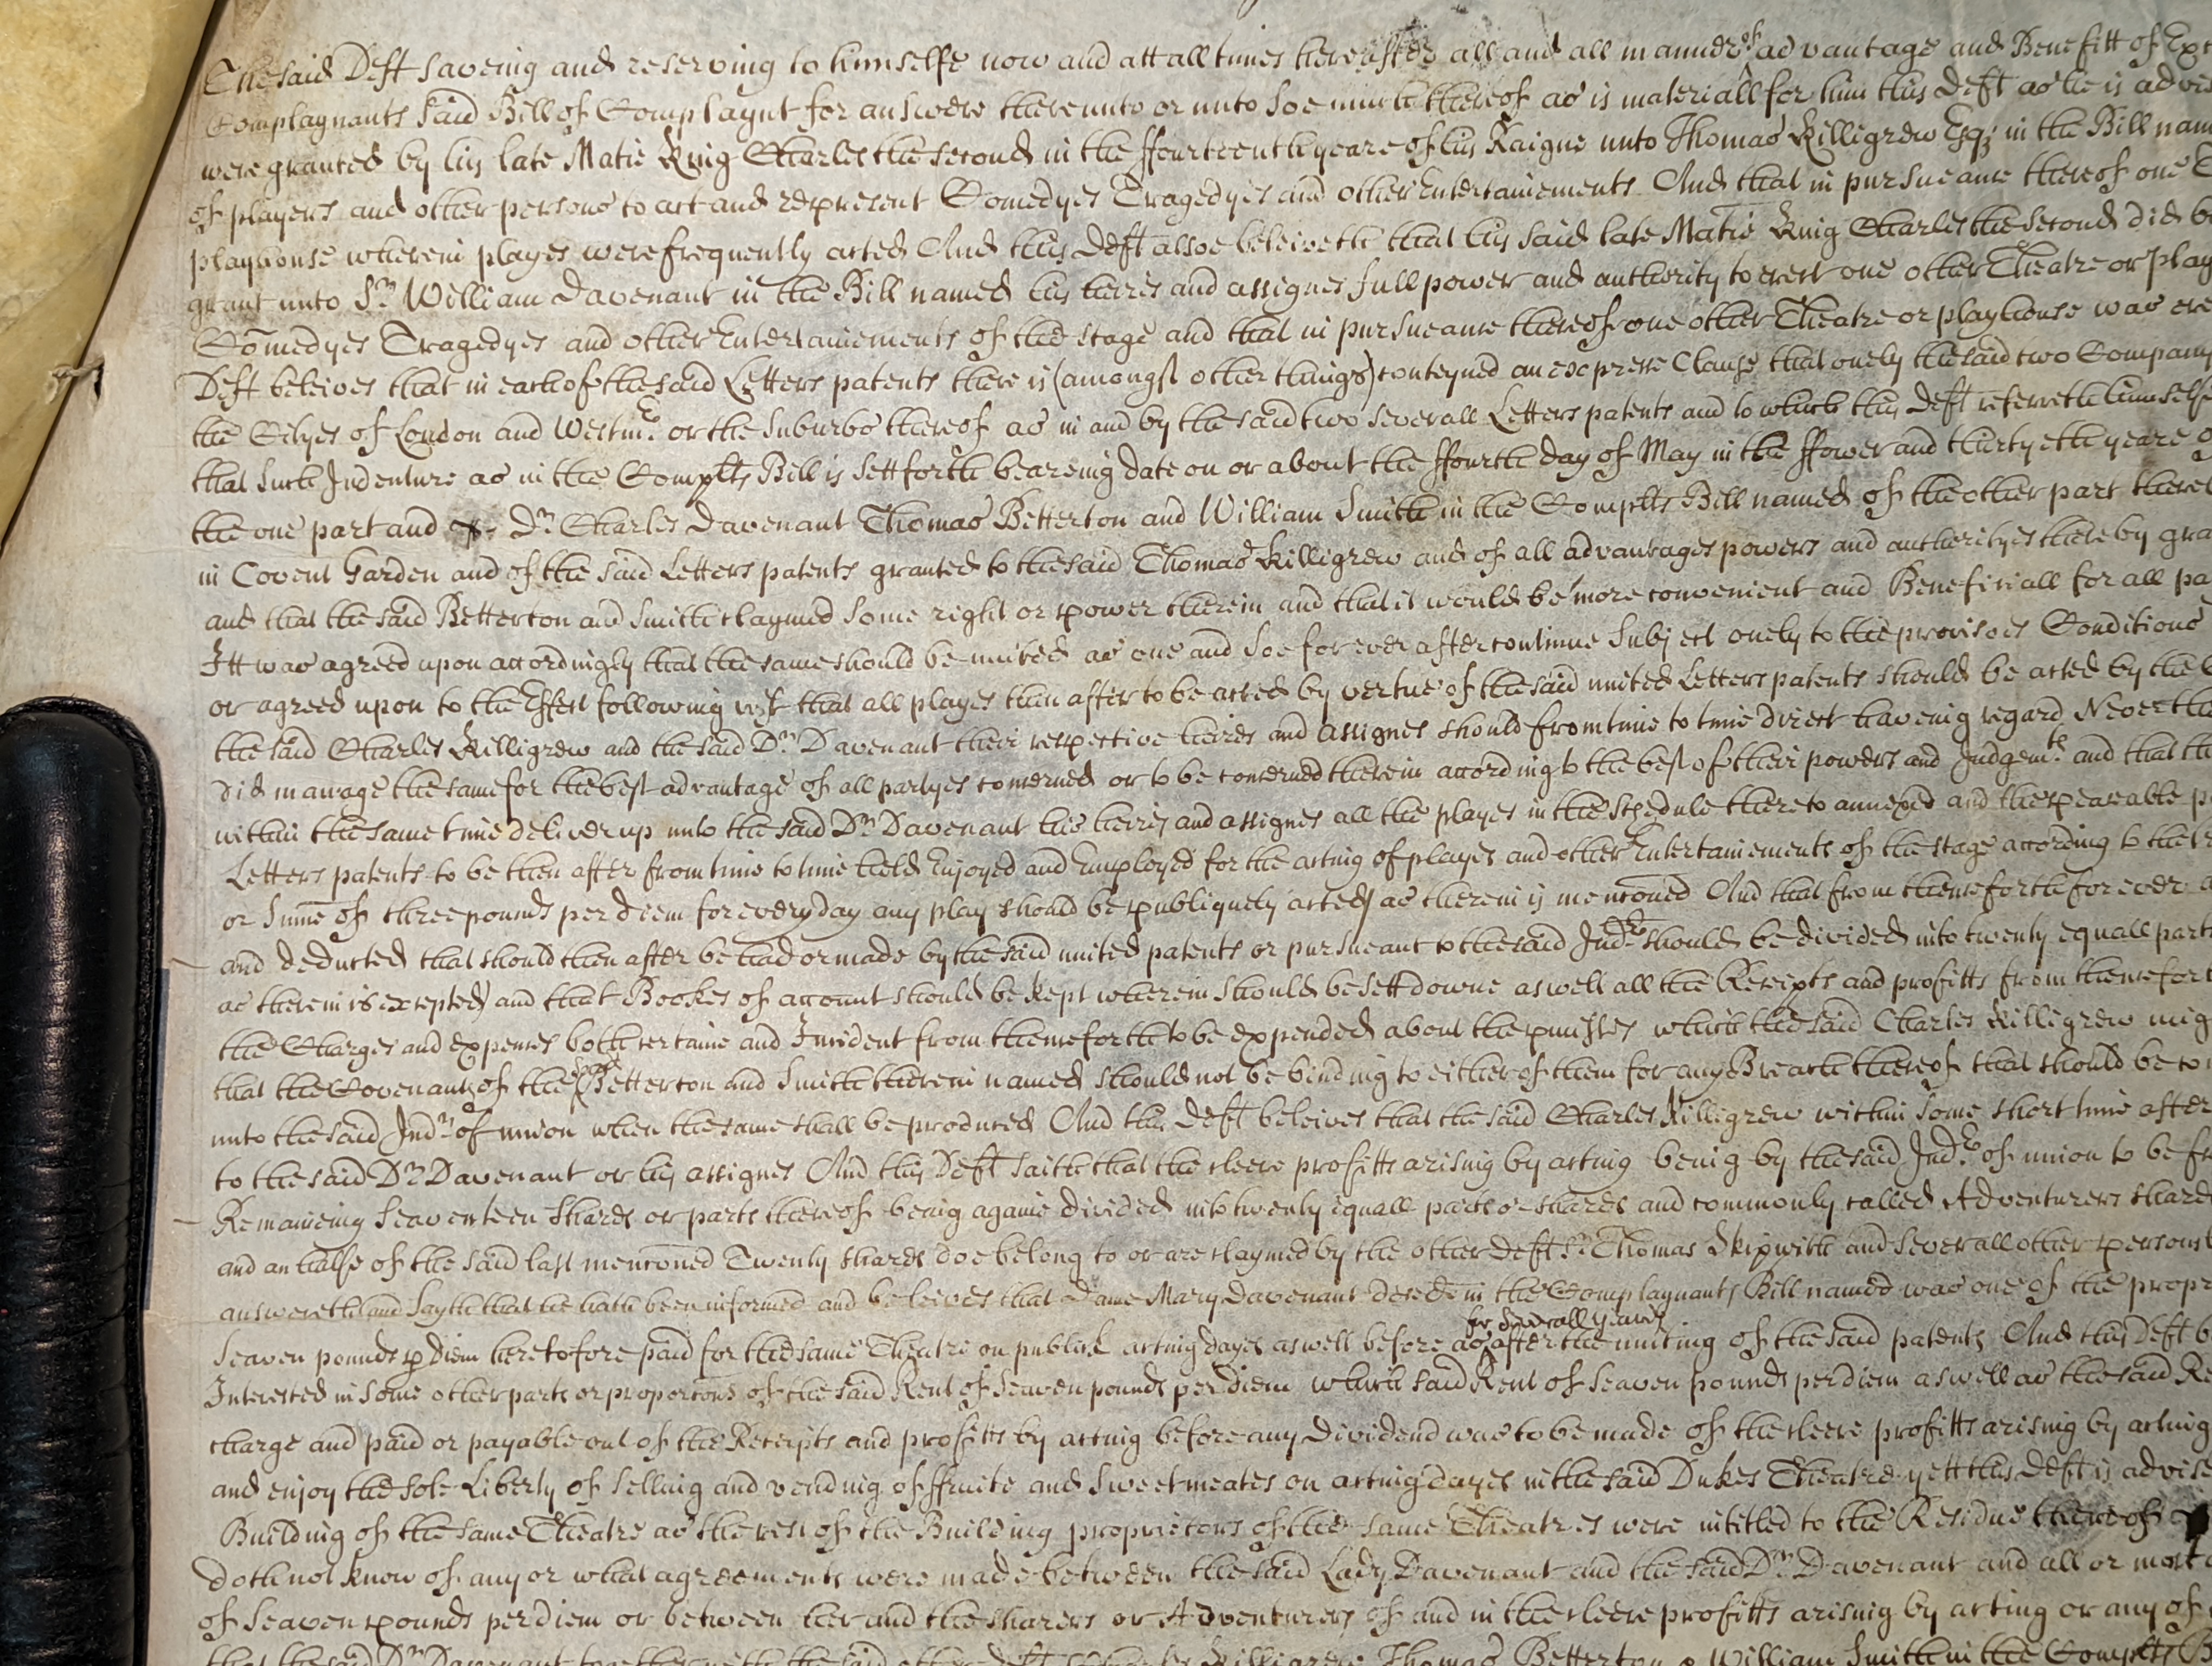 The said Deft saveing and reserving to himselfe now and att all times hereafter all and all manner of advantage and Benefitt of
Complaynants said Bill of Complaynt for answere thereunto or unto soe much thereof as is materiall for him this Deft as he is
were granted by his late Matie King Charles the second in the ffourteenth yeare of his Raigne unto Thomas Killigrew Esqr in the Bill
of players and other persons to act and represent Comedyes Tragedyes and other Entertainements And that in pursueance thereof one
playhouse wherein playes were frequently acted And this Deft alsoe beleiveth that his said late Matie King Charles the second did
grant unto Sr William Davenant in the Bill named his heires and assignes full power and authority to erect one other Theatre or
Comedyes Tragedyes and other Entertainements of the stage and that in pursueance thereof one other Theatre or playhouse was
Deft beleives that in each of the said Letters patents there is (amongst other things) conteyned an expresse Clause that onely the said two
the Cityes of London and Westmr or the suburbs thereof as in and by the said two severall Letters patents and to which this Deft referreth himselfe
that such Indenture as in the Complts Bill is sett forth beareing date on or about the ffourth day of May in the ffower and thirtyeth yeare
the one part and Dr Charles Davenant Thomas Betterton and William Smith in the Complts Bill named of the other part
in Covent Garden and of the said Letters patents granted to the said Thomas Killigrew and of all advantages powers and authorityes thereby
and that the said Betterton and Smith claymed some right or power therein and that it would be more convenient and Beneficiall for all
Itt was agreed upon accordingly that the same should be united as one and soe for ever after continue Subject onely to the provisoes Conditions
or agreed upon to the Effect following vizt that all playes then after to be acted by vertue of the said united Letters patents should be acted by the
the said Charles Killigrew and the said Dr Davenant their respective heires and assignes should from time to time direct haveing regard
did manage the same for the best advantage of all partyes concerned or to be concerned therein according to the best of their powers and Judgemts and that
within the same time deliver up unto the said Dr Davenant his heires and assignes all the playes in the schedule thereto annexed and the peaceable
Letters patents to be then after from time to time held Enjoyed and Employed for the acting of playes and other Entertainements of the stage according to the
or sume of three pounds per diem for every day any play should be publiquely acted) as therein is menconed And that from thenceforth for ever
and deducted that should then after be had or made by the said united patents or pursueant to the said Indre should be divided into twenty equall
as therein is excepted) and that Bookes of account should be kept wherein should be sett downe as well all the Receipts and profitts from
the Charges and expences both certaine and Incident from thenceforth to be expended about the pmisses which the said Charles Killigrew
that the Covenants of the said Betterton and Smith therein named should not be binding to either of them for any Breach thereof that should be
unto the said Indre of union when the same shall be produced And this Deft beleives that the said Charles Killigrew within some short time after
to the said Dr Davenant or his assignes And this Deft saith that the cleere profitts ariseing by acting being by the said Indre of union to be
Remaineing seaventeen shares or parts thereof being againe divided into twenty equall parts or shares and commonly called Adventurers
and an halfe of the said last menconed Twenty shares doe belong to or are claymed by the other Deft Sr Thomas Skipwith and severall other
answereth and sayth that he hath been informed and beleives that Dame Mary Davenant deced in the Complaynants Bill named was one of the
for severall yeares
Seaven pounds p diem heretofore paid for the same Theatre on publick acting dayes as well before as after the uniting of the said patents And this Deft
Interested in some other parts or proportons of the said Rent of seaven pounds per diem which said Rent of seaven pounds per diem as well as the said
charge and paid or payable out of the Receipts and profitts by acting before any Dividend was to be made of the cleere profitts arising by acting
and enjoy the sole Liberty of selling and vending of ffruite and sweetmeates on acting dayes in the said Dukes Theatre yett this Deft is
Building of the same Theatre as the rest of the Building proprietors of the same Theatres were intitled to the Residue thereof
doth not know of any or what agreements were made between the said Lady Davenant and the said Dr Davenant and all or most
of seaven pounds per diem or between her and the sharers or Adventurers of and in the cleere profitts arising by acting or any of
that the said Dr Davenant together with the said other Deft Killigrew Thomas Betterton & William Smith in the Complts